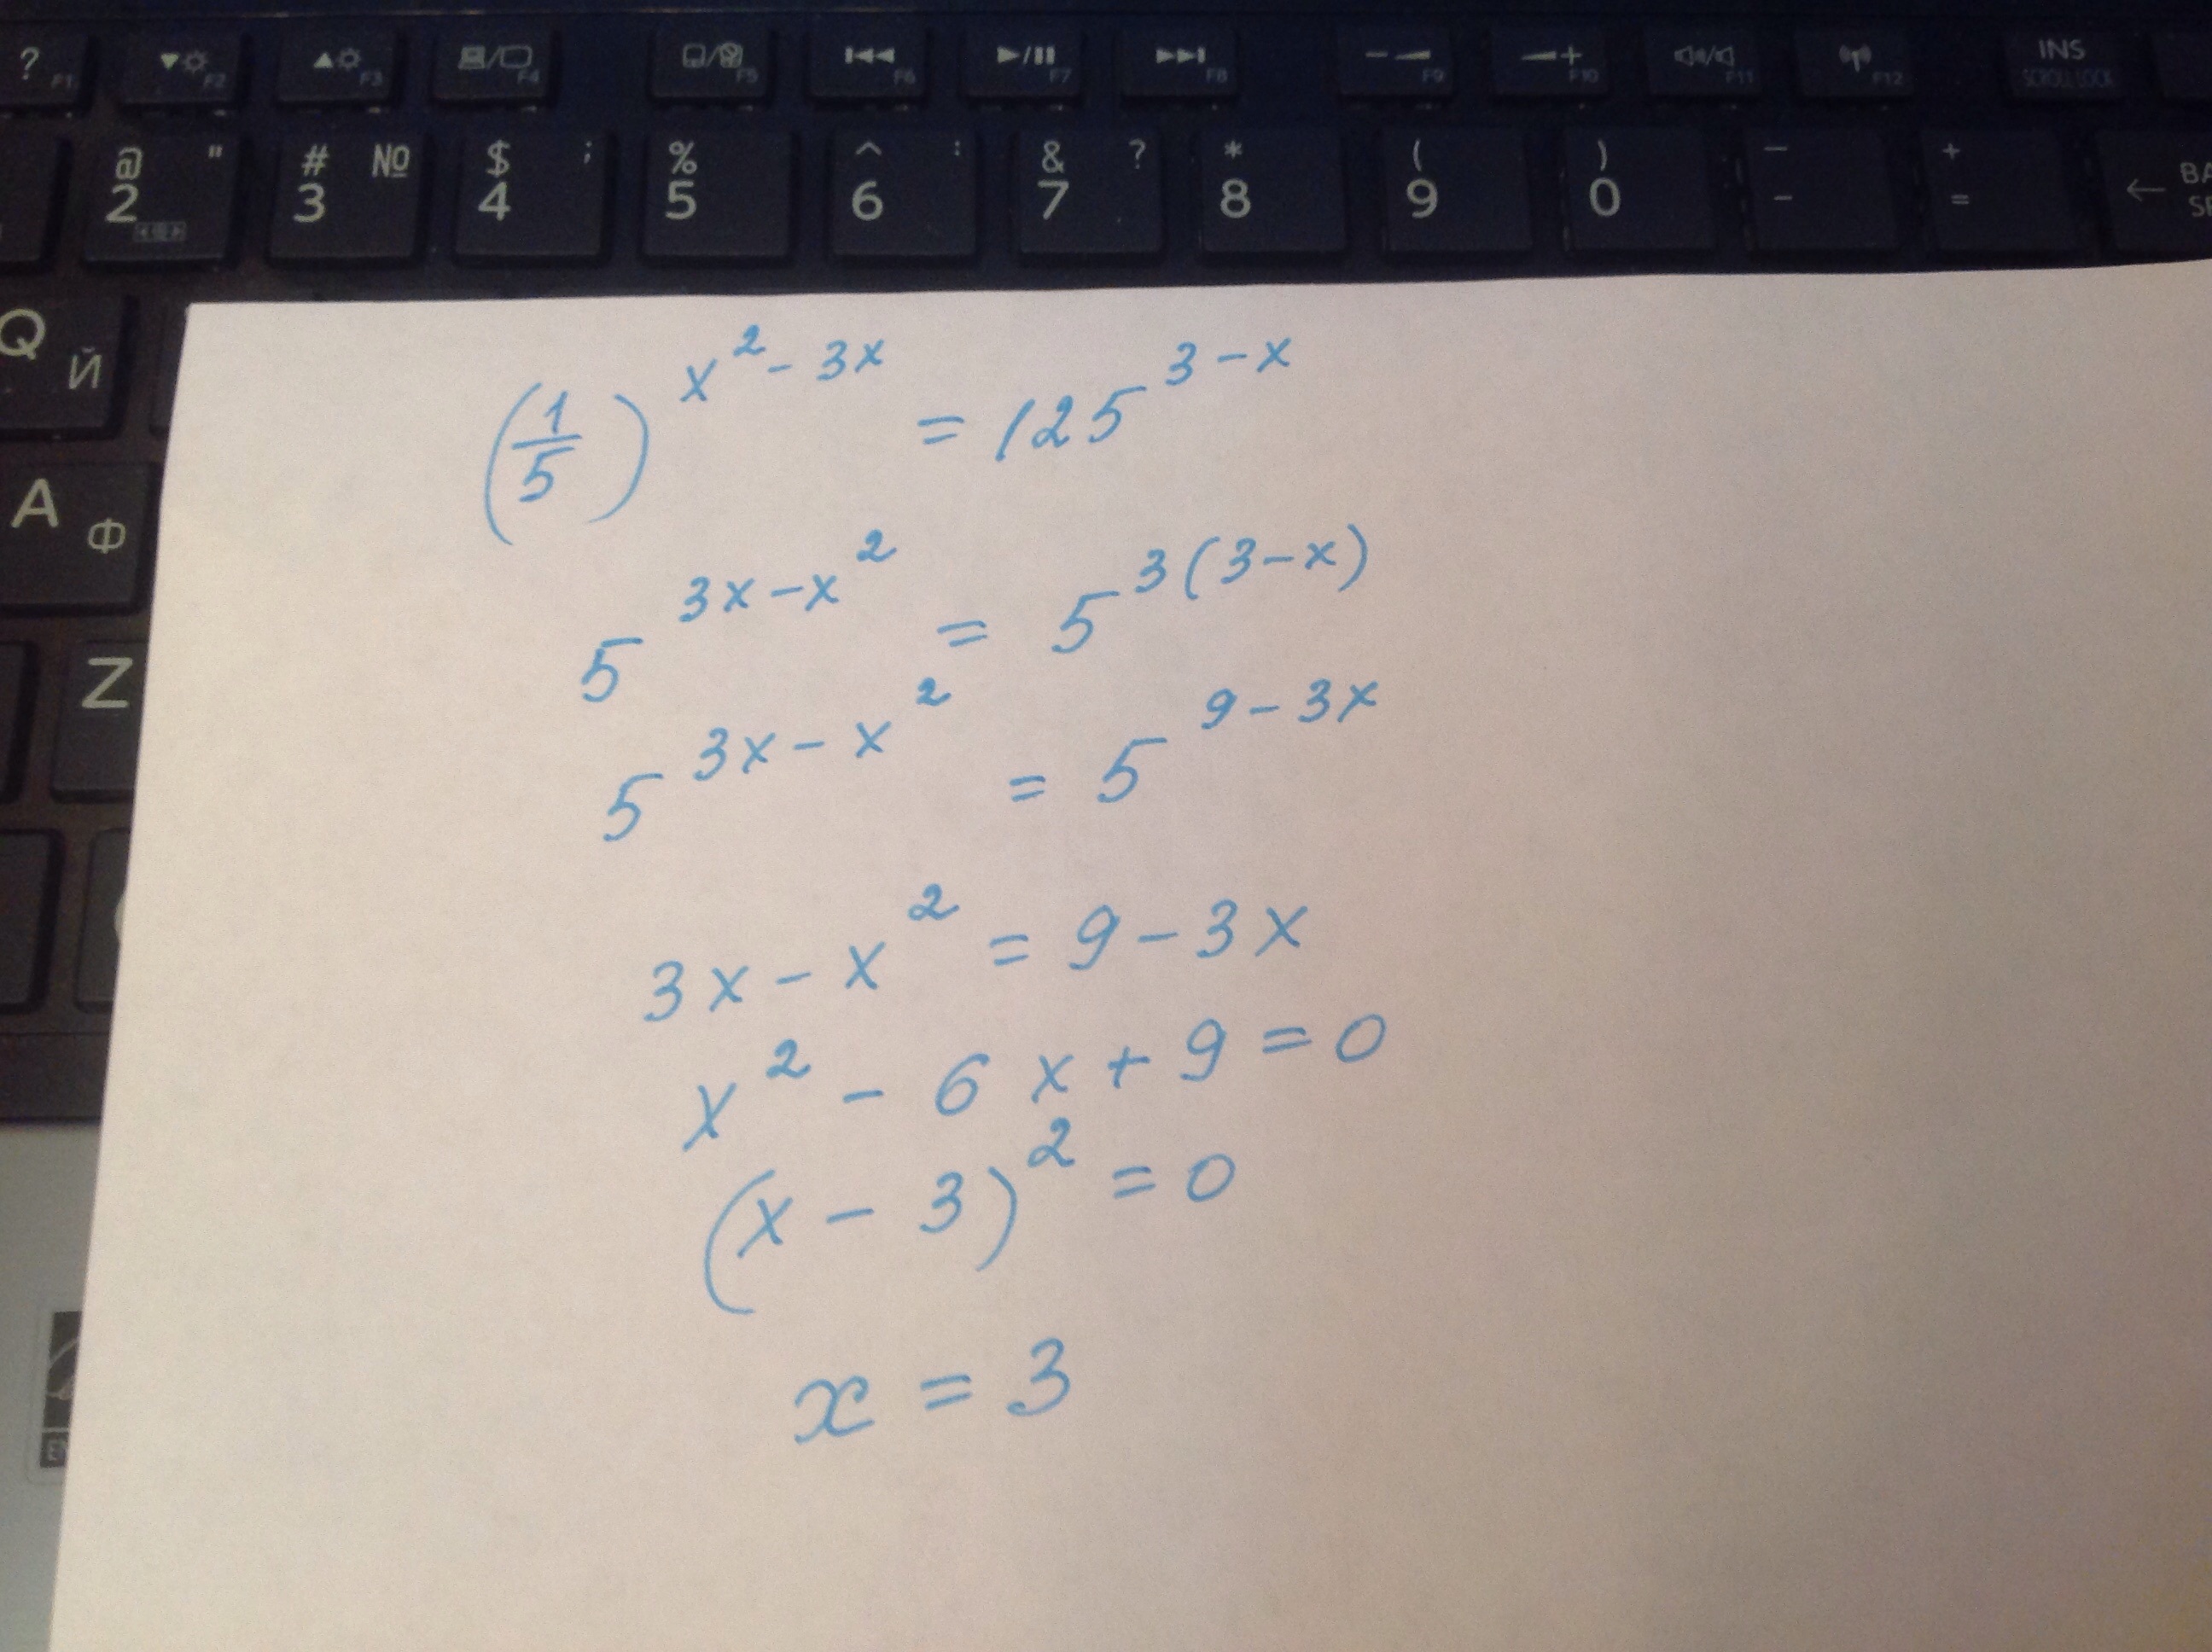 ? F1 F2 F3 F4 F5 F6 F7 F8 F9 F10 F11 F12 INS SCROLL LOCK
@ " # № $ ; % ^ : & ? * ( ) — +
2 3 4 5 6 7 8 9 0 - = ←
Q Й
A Ф
Z
(1/5)^(x² - 3x) = 125^(3 - x)
5^(3x - x²) = 5^(3(3 - x))
5^(3x - x²) = 5^(9 - 3x)
3x - x² = 9 - 3x
x² - 6x + 9 = 0
(x - 3)² = 0
x = 3